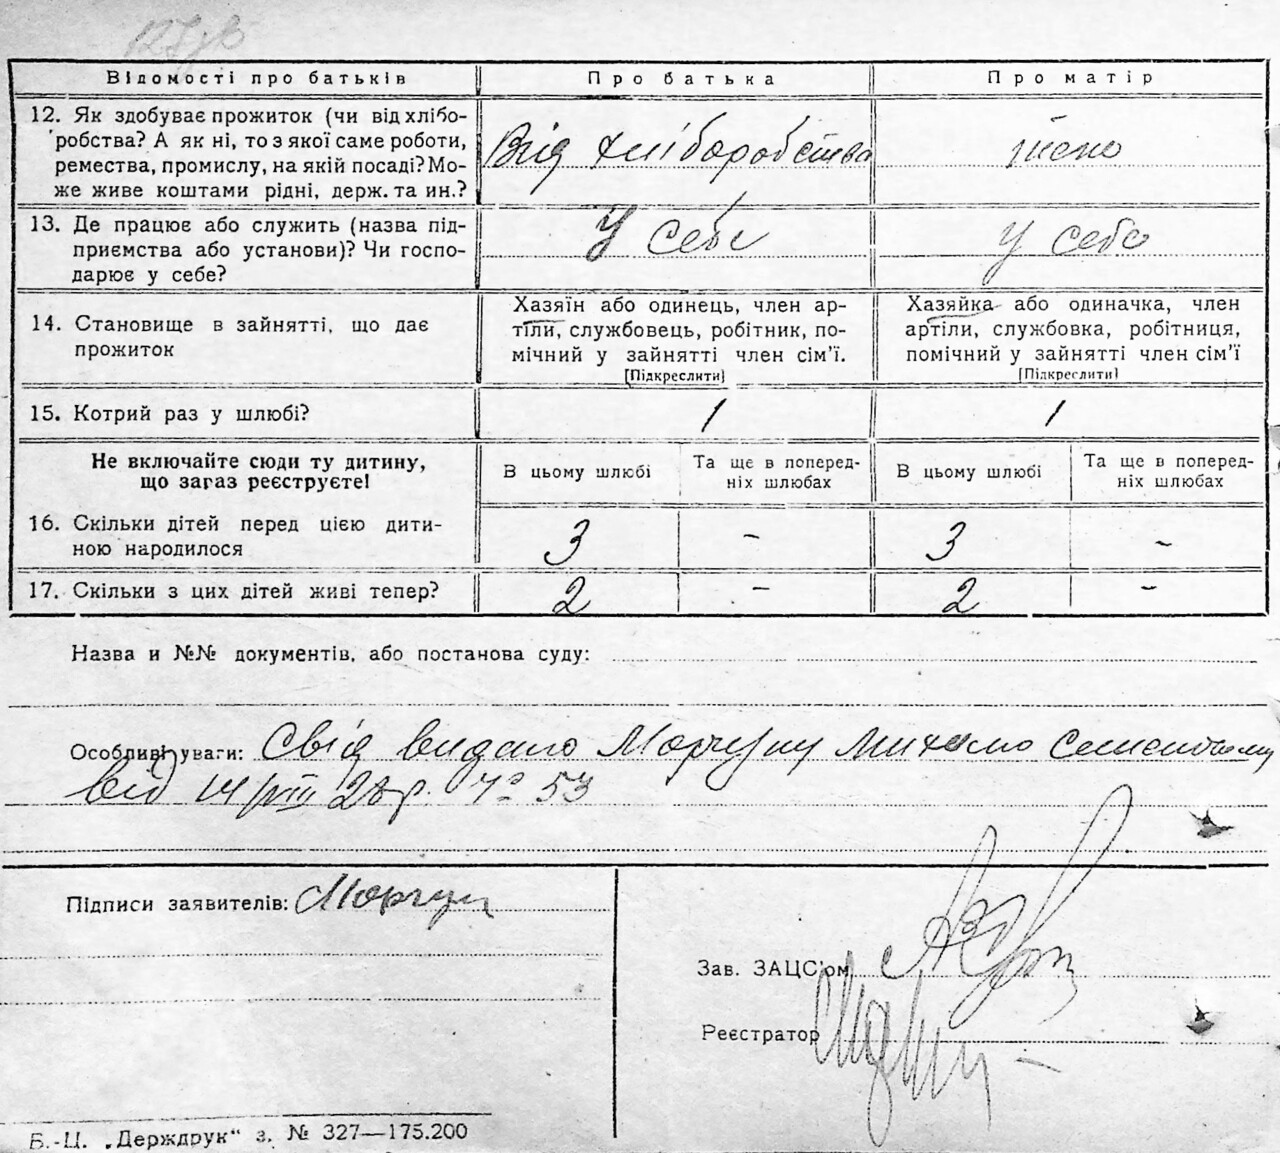 Відомості про батьків Про батька Про матір
12. Як здобуває прожиток (чи від хлібо-
робства? А як ні, то з якої саме роботи,
ремества, промислу, на якій посаді? Мо-
же живе коштами рідні, держ. та ин.?
Від хліборобства
13. Де працює або служить (назва під-
приємства або установи)? Чи госпо-
дарює у себе?
У себе У себе
14. Становище в зайнятті, що дає
прожиток
Хазяїн або одинець, член ар-
тіли, службовець, робітник, по-
мічний у зайнятті член сім'ї.
[Підкреслити]
Хазяйка або одиначка, член
артіли, службовка, робітниця,
помічний у зайнятті член сім'ї
[Підкреслити]
15. Котрий раз у шлюбі? 1 1
Не включайте сюди ту дитину,
що загаз реєструєте!
В цьому шлюбі
Та ще в поперед-
ніх шлюбах
В цьому шлюбі
Та ще в поперед-
ніх шлюбах
16. Скільки дітей перед цією дити-
ною народилося
3 - 3 -
17. Скільки з цих дітей живі тепер? 2 - 2 -
Назва и №№ документів, або постанова суду:
Особливі уваги: Свід видано Моргуну Михайло
від 14/VIII 28 р. № 53
Підписи заявителів: Моргун
Зав. ЗАЦС'ом
Реєстратор
Б.-Ц. „Держдрук" з. № 327—175.200